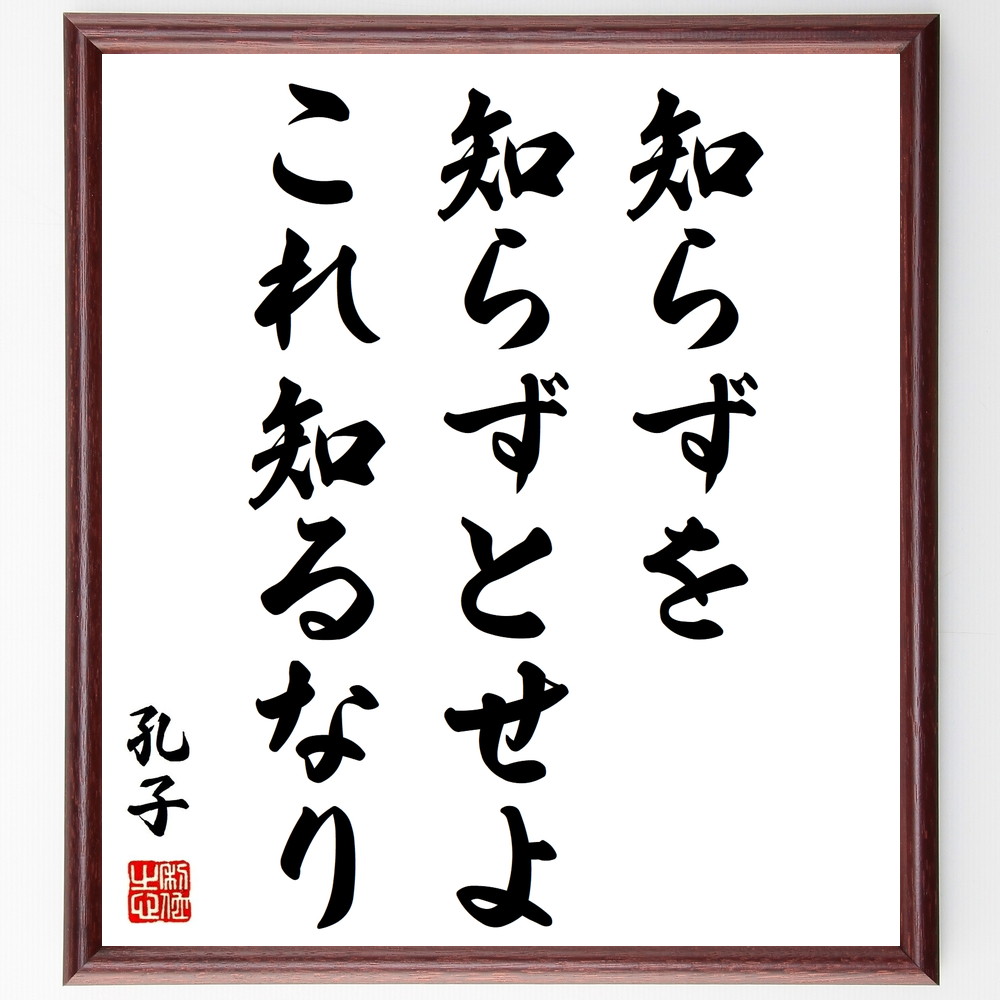 知らずを
知らずとせよ
これ知るなり
孔子